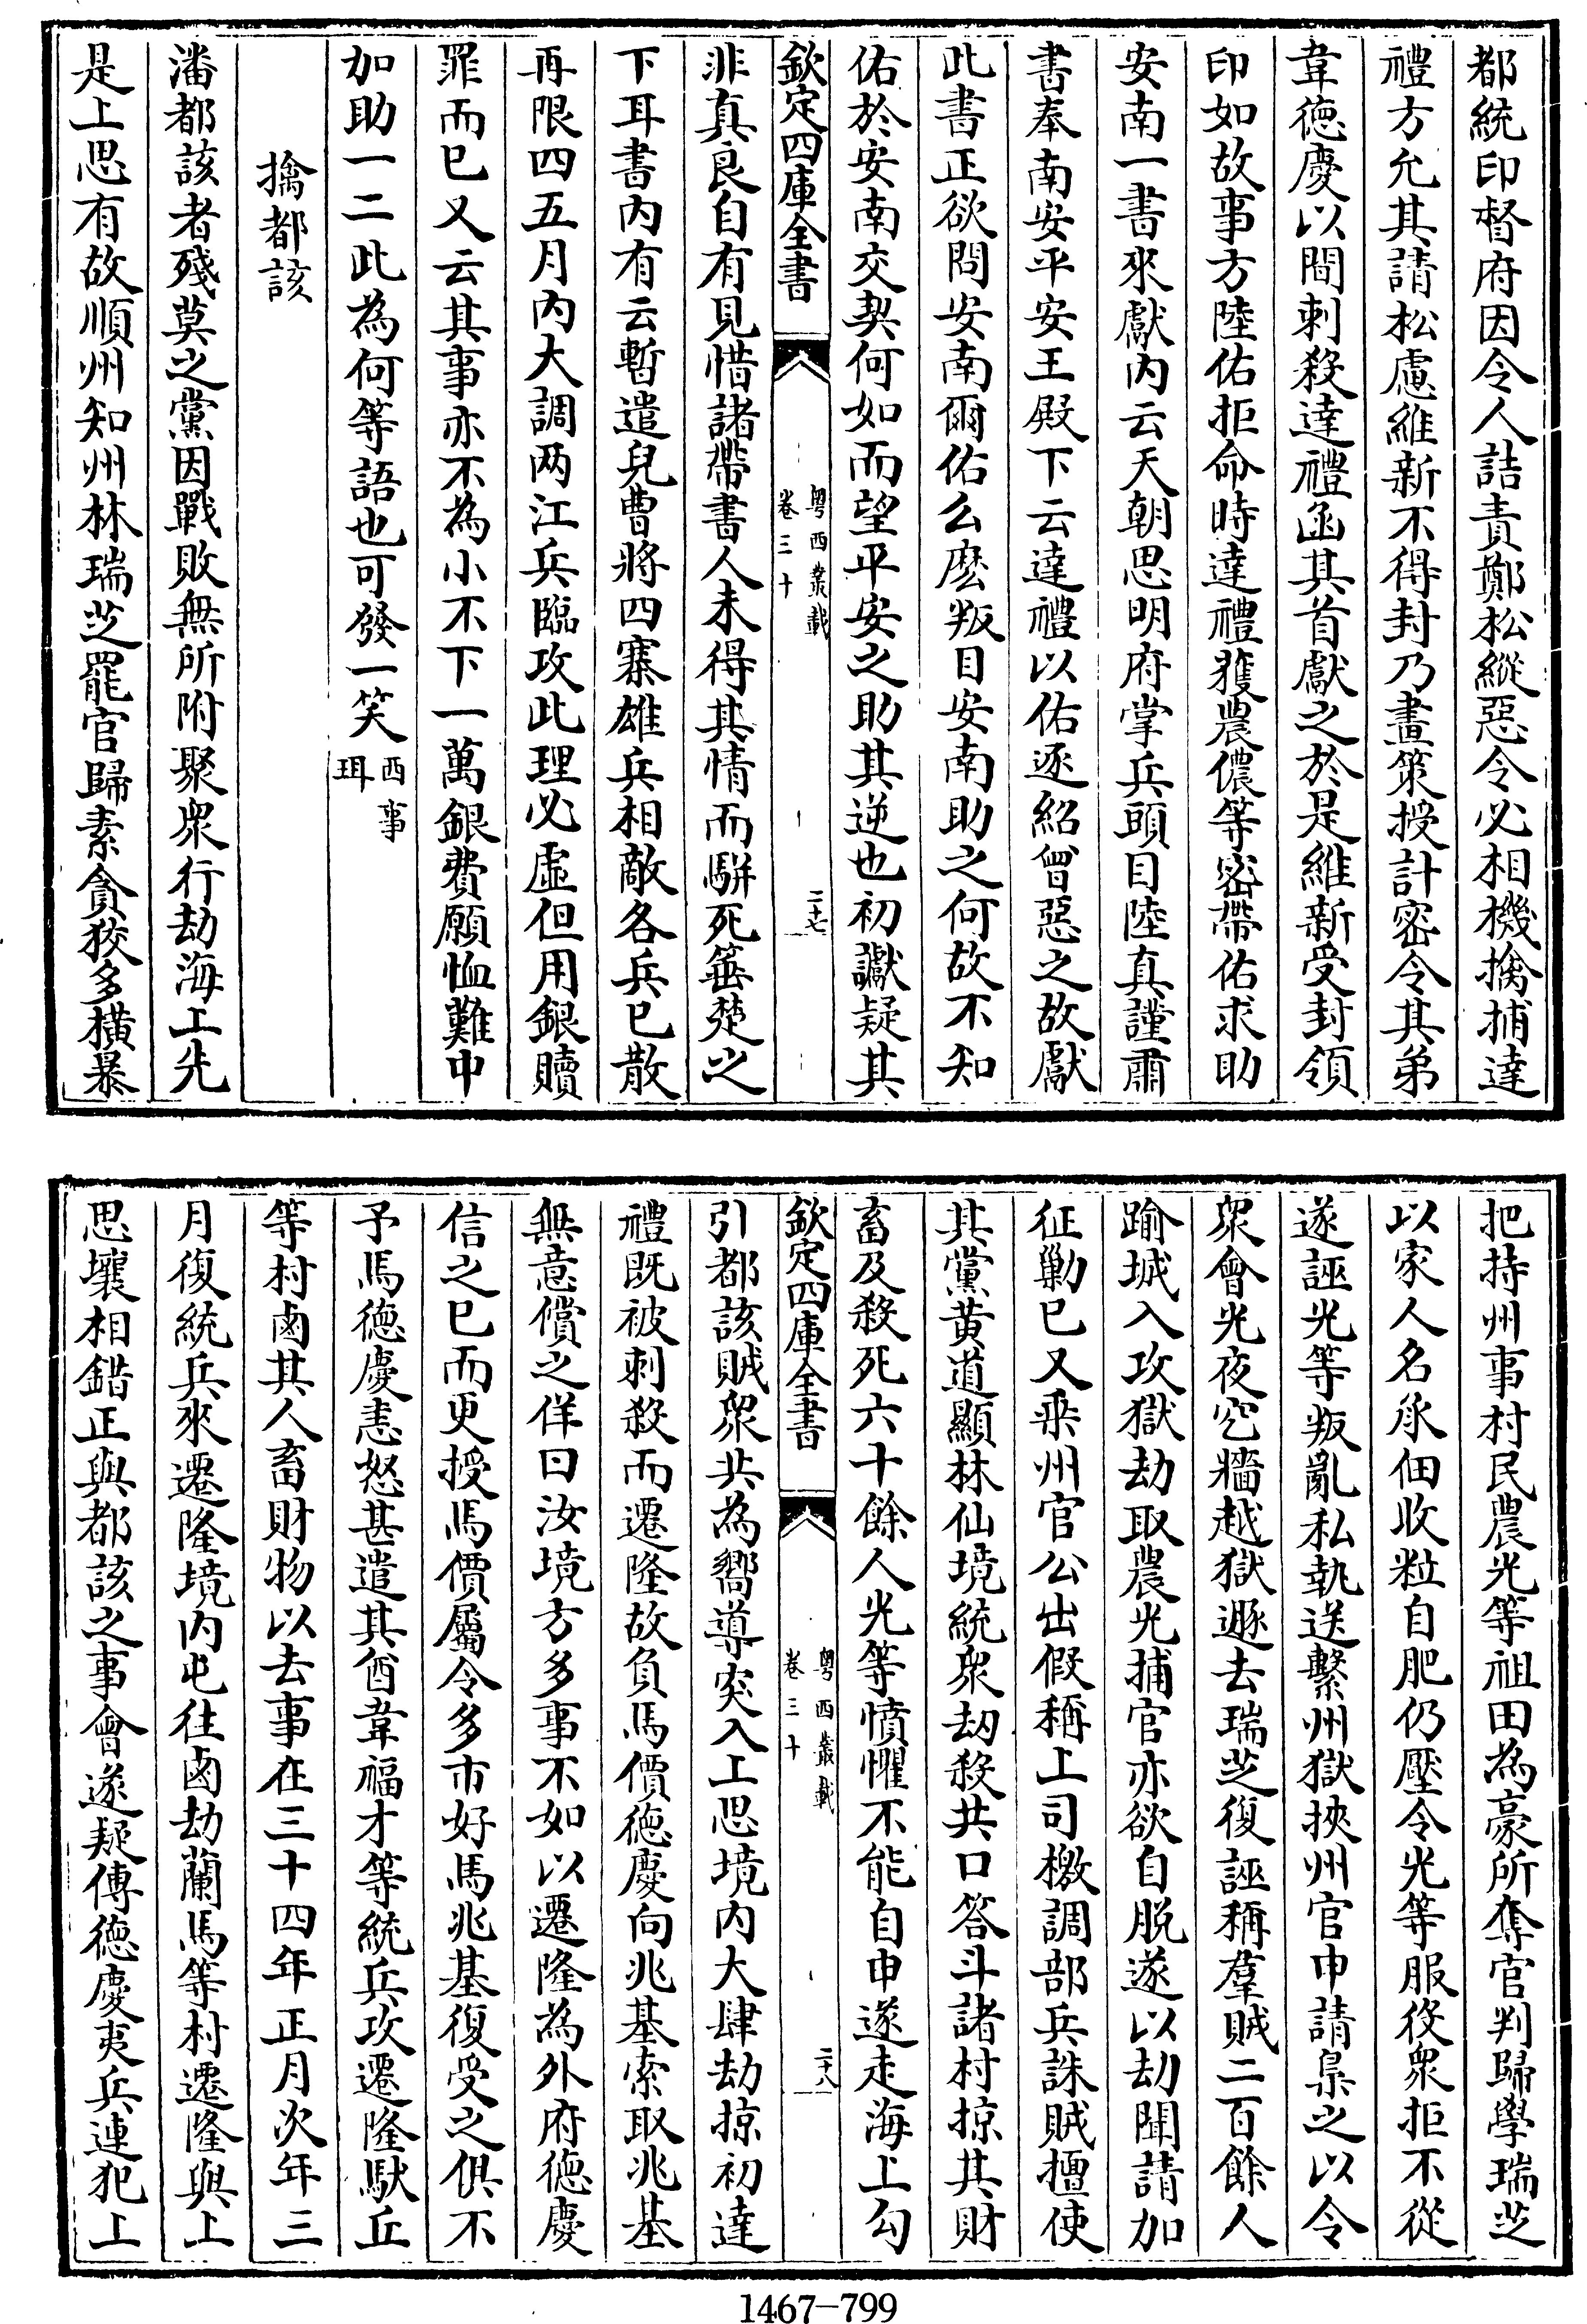 都統印督府因令人詰責鄭松縱惡令必相機擒捕達
禮方允其請松慮維新不得封乃畫策授計密令其弟
韋徳慶以間刺殺達禮函其首獻之於是維新受封領
印如故事方陸佑拒命時達禮獲農儂等密帶佑求助
安南一書來獻内云天朝思明府掌兵頭目陸真謹肅
書奉南安平安王殿下云達禮以佑逐紹曾惡之故獻
此書正欲問安南爾佑么麽叛目安南助之何故不知
佑於安南交契何如而望平安之助其逆也初讞疑其
欽定四庫全書
粤西叢載
卷三十
二十七
非真良自有見惜諸帶書人未得其情而駢死箠楚之
下耳書内有云暫遣兒曹將四寨雄兵相敵各兵已散
再限四五月内大調两江兵臨攻此理必虚但用銀贖
罪而已又云其事亦不為小不下一萬銀費願恤難中
加助一二此為何等語也可發一笑西事
珥
擒都該
潘都該者殘莫之黨因戰敗無所附聚衆行劫海上先
是上思有故順州知州林瑞芝罷官歸素貪狡多横暴
把持州事村民農光等祖田為豪所奪官判歸學瑞芝
以家人名承佃收粒自肥仍壓令光等服役衆拒不從
遂誣光等叛亂私執送繫州獄挾州官申請梟之以令
衆會光夜穴牆越獄遯去瑞芝復誣稱羣賊二百餘人
踰城入攻獄劫取農光捕官亦欲自脱遂以劫聞請加
征勦已又乘州官公出假稱上司檄調部兵誅賊擅使
其黨黄道顯林仙境統衆劫殺共口答斗諸村掠其財
畜及殺死六十餘人光等憤懼不能自申遂走海上勾
欽定四庫全書
粤西叢載
卷三十
二十八
引都該賊衆共為嚮導突入上思境内大肆劫掠初達
禮既被刺殺而遷隆故負馬價徳慶向兆基索取兆基
無意償之佯曰汝境方多事不如以遷隆為外府徳慶
信之已而更授馬價屬令多市好馬兆基復受之俱不
予馬徳慶恚怒甚遣其酋韋福才等統兵攻遷隆馱丘
等村鹵其人畜財物以去事在三十四年正月次年三
月復統兵來遷隆境内屯往鹵劫蘭馬等村遷隆與上
思壤相錯正與都該之事會遂疑傳徳慶夷兵連犯上
1467-799